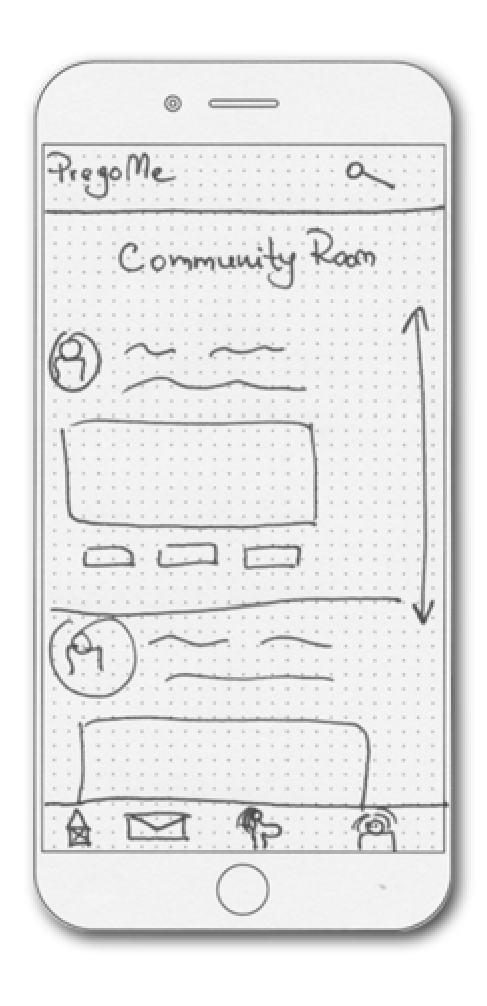 PregoMe
Community Room